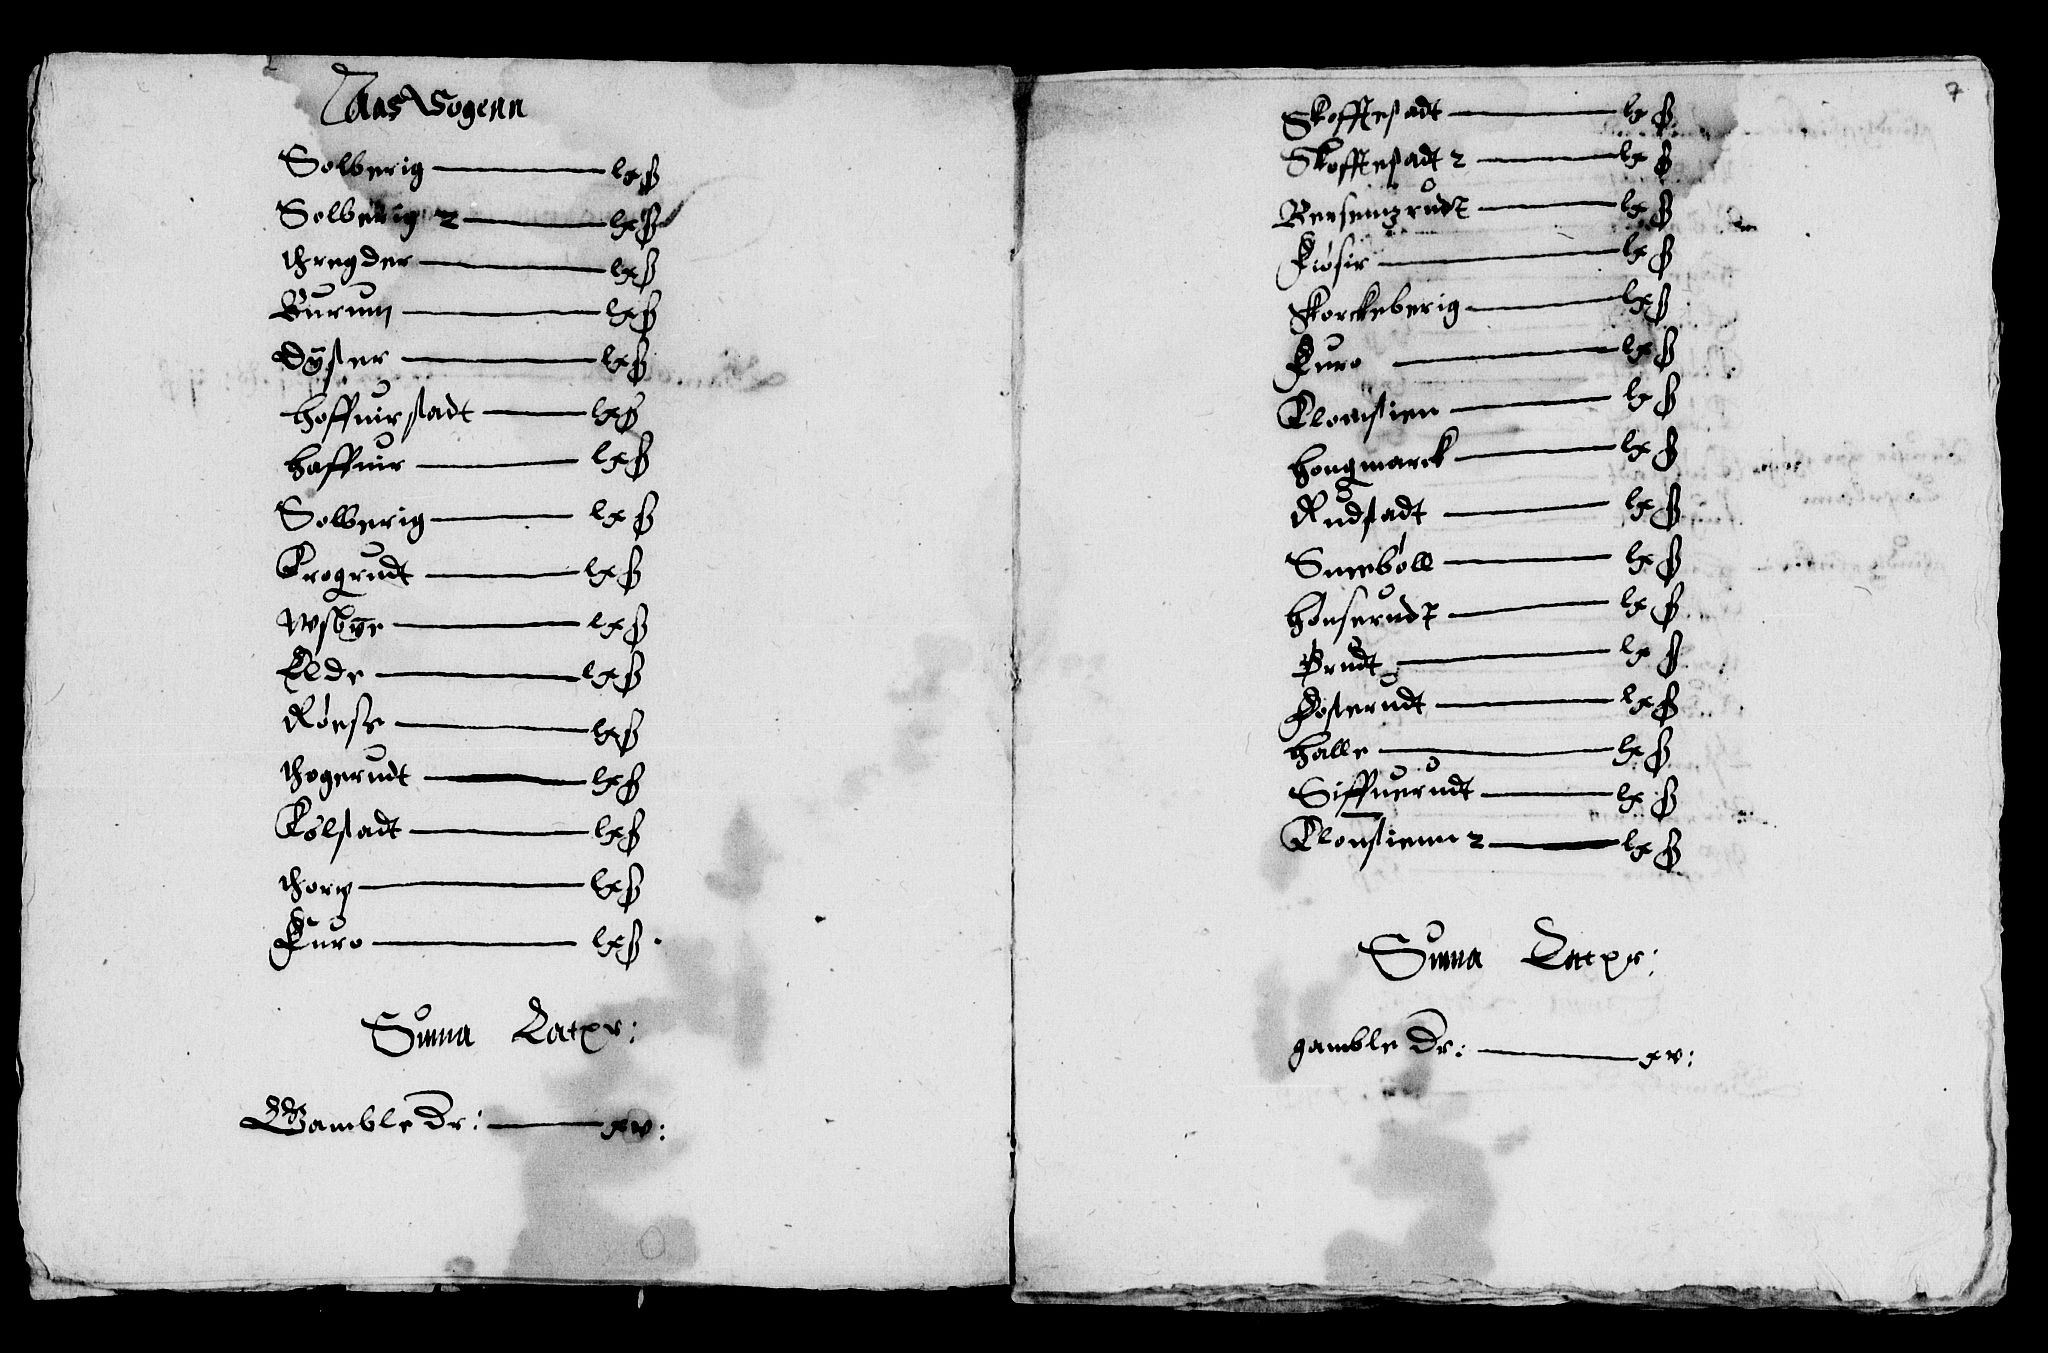 Aas Sogenn
Solberig — lx ß
Solberig 2 — lx ß
thregder — lx ß
Burum — lx ß
Dÿster — lx ß
hoffuirstadt — lx ß
haffuir — lx ß
Solberig — lx ß
Krogrudt — lx ß
Wstbye — lx ß
Elde — lx ß
Røese — lx ß
thogerudt — lx ß
Kølstadt — lx ß
thorp — lx ß
Furo — lx ß
Suma Latrr:
Gamble Dr: — xv:
7
Skofftestadt — lx ß
Skofftestadt 2 — lx ß
Kiøsir — lx ß
Skorckeberig — lx ß
Furo — lx ß
Klomstien — lx ß
hongmarck — lx ß
Rudstadt — lx ß
Sneebøll — lx ß
hønserudt — lx ß
Brudt — lx ß
Fosterudt — lx ß
halle — lx ß
Siffuerudt — lx ß
Klonstienn 2 — lx ß
Suma Latrr:
gamble Dr: — xv: